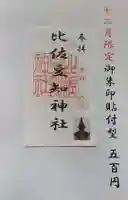 十二月限定御朱印貼付型 五百円
奉拝
比佐豆知神社